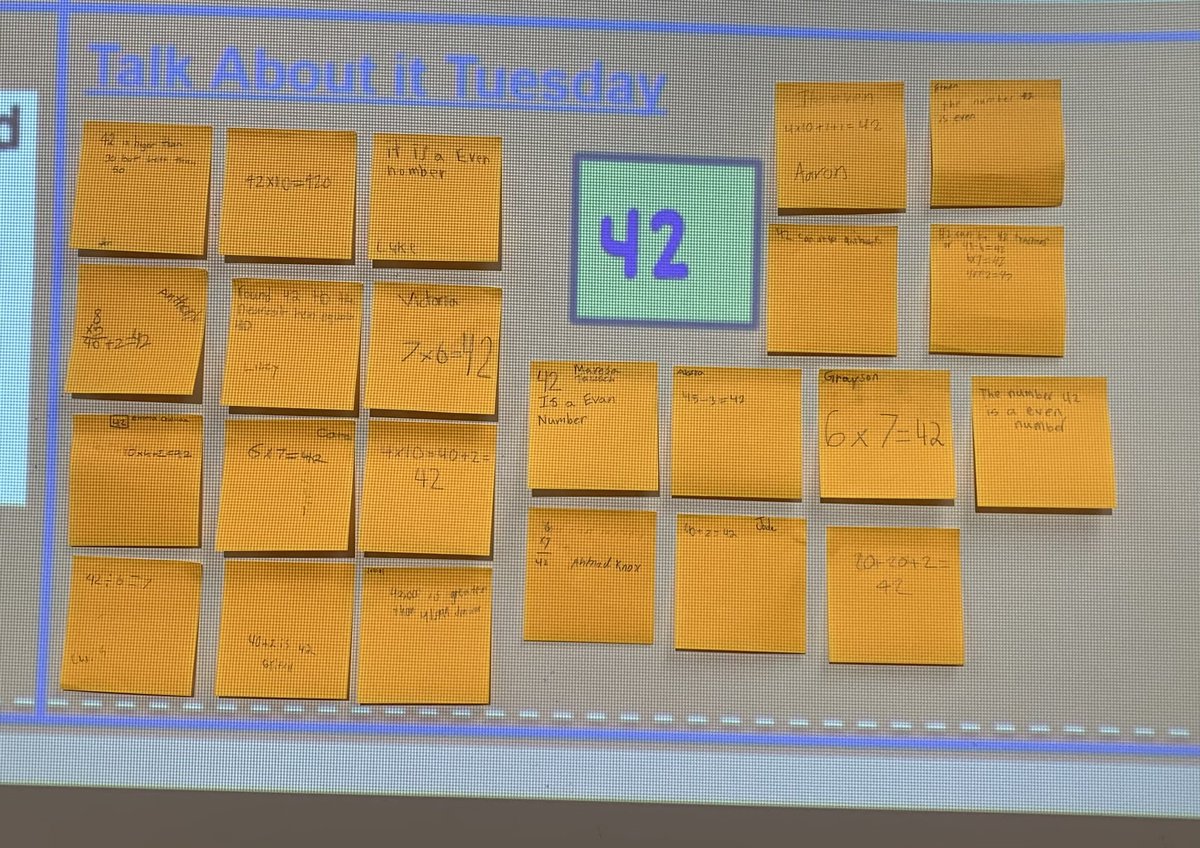 Talk About it Tuesday
42
42 is biger than
30 but less than
50
42x10=420
it Is a Even
nomber
Luke
Anthony
8
x5
40 +2=42
Round 42 to the
nearest ten equals
40
Lizzy
Victoria
7x6=42
42
10x4+2=42
Cara
6x7=42
4x10=40+2=
42
42÷6=7
40+2 is 42
is greater
than
The even
4x10+1+1=42
Aaron
the number 42
is even
42 can
42 can be 42
6x7=42
40+2=42
42 Maresa
Is a Evan
Number
45-3=42
Grayson
6x7=42
The number 42
is a even
number
6
x7
42
Ahmad Knox
40+2=42 Jade
20+20+2=
42